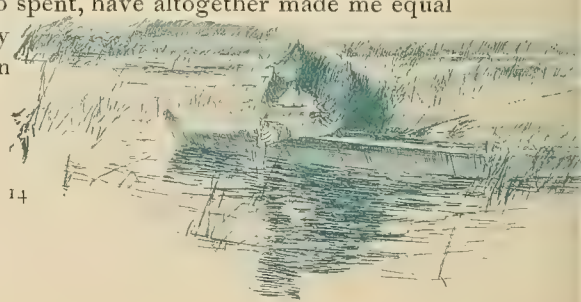 spent, have altogether made me equal
14